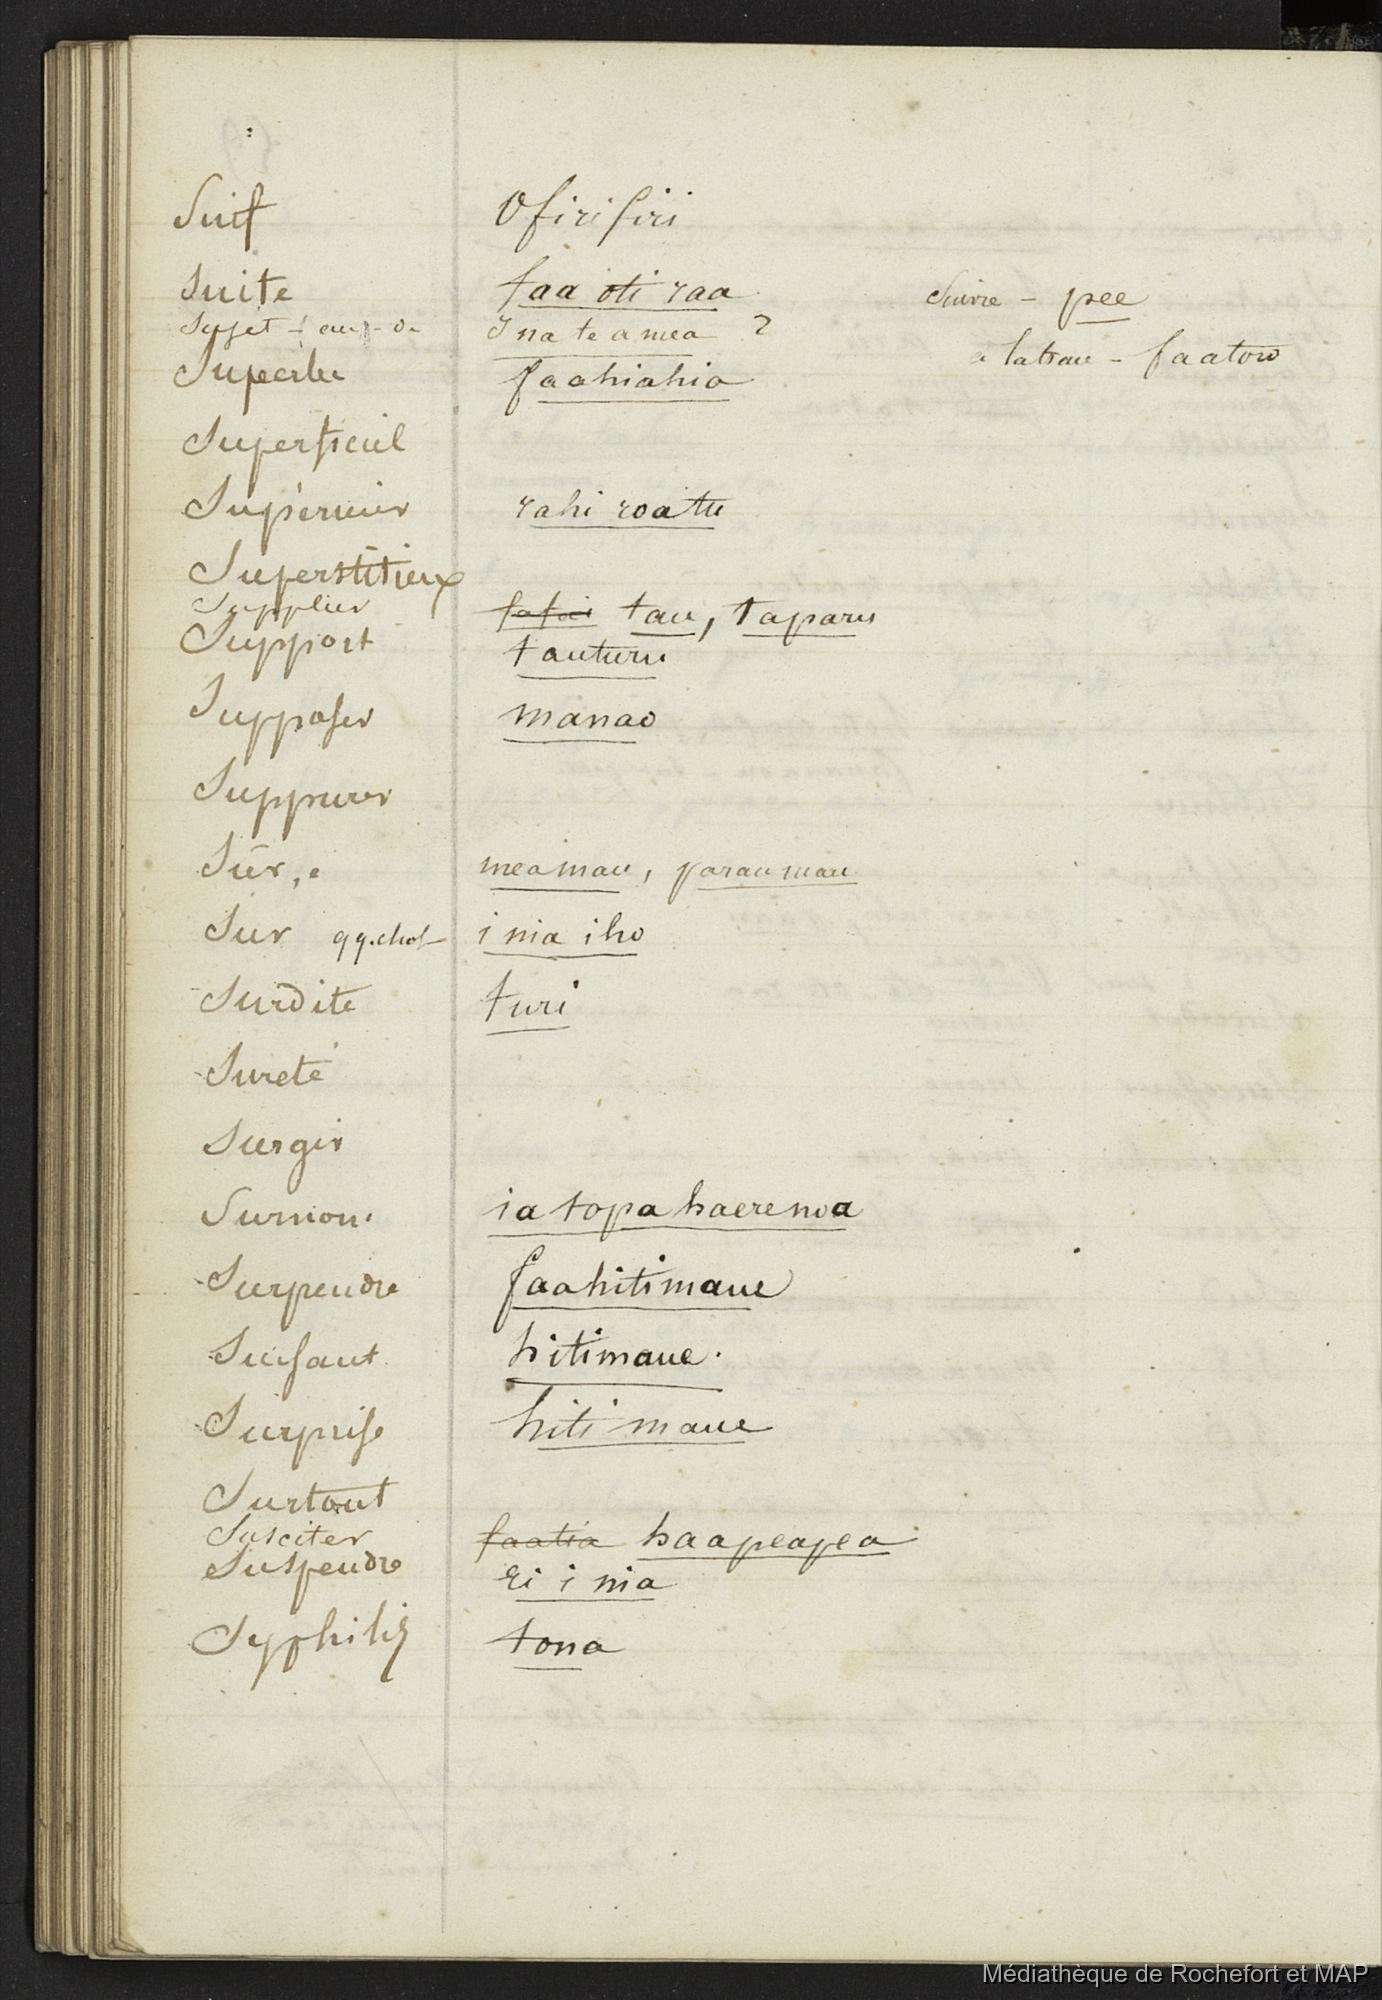 Suif Ofirifiri
Suite faa oti raa Suivre - pee
Sujet - (au) - de Ina te a mea ? a la trace - faatoro
Superbe faahiahia
Superficiel
Supérieur rahi roatu
Superstitieux
Supplier fafai tau, taparu
Support tauturu
Supposer manao
Suppurer
Sûr, e mea mau, parau mau
Sur qq.chose i nia iho
Surdité turi
Sureté
Surgir
Surnom. ia topa haere noa
Surprendre faahitimaue
Sursaut hitimaue.
Surprise hiti maue
Surtout
Susciter faatia haapeapea
Suspendre ri i nia
Syphilis tona
Médiathèque de Rochefort et MAP